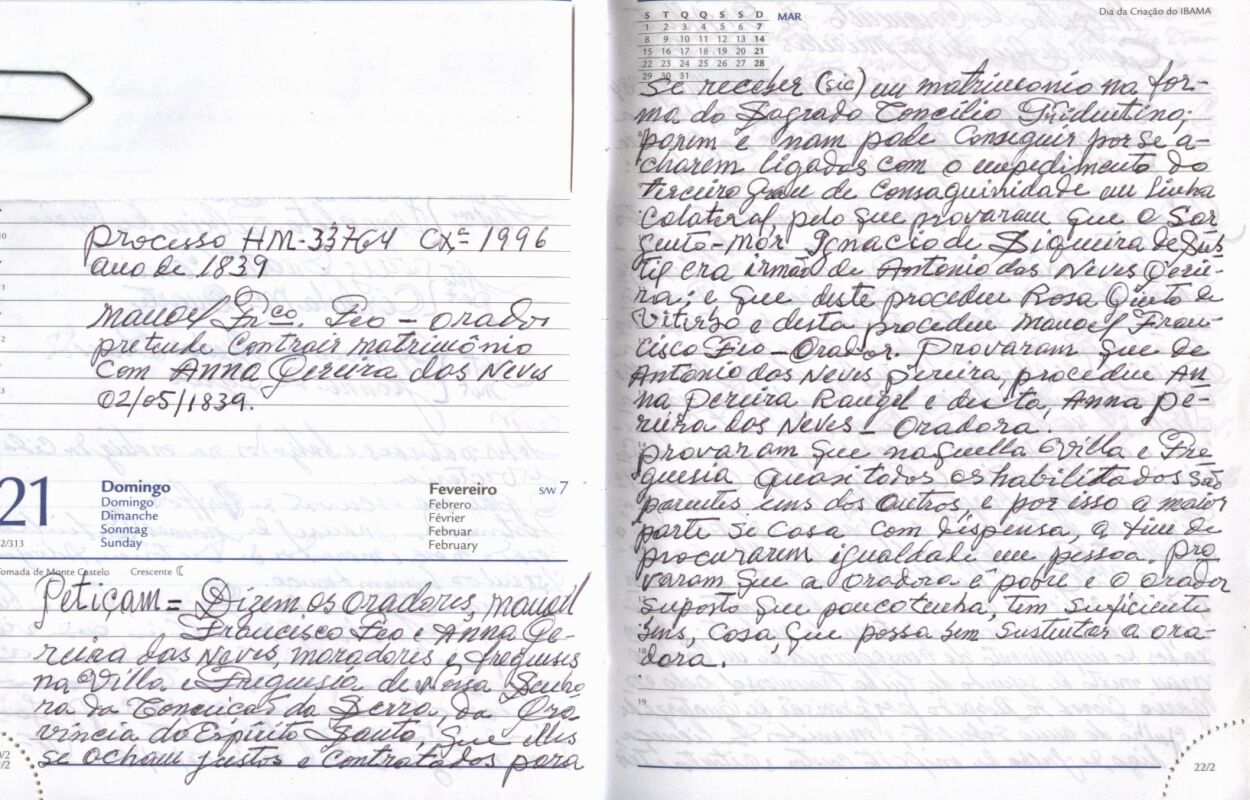 Processo HM-33764 Cxª 1996
ano de 1839
Manoel Frco. Feo - orador
pretende contrair matrimônio
com Anna Pereira das Neves
02/05/1839.
21
Domingo
Domingo
Dimanche
Sonntag
Sunday
Fevereiro S/W 7
Febrero
Février
Februar
February
2/313
Tomada de Monte Castelo Crescente
Petiçam = Dizem os oradores, Manoel
Francisco Feo e Anna Pe-
reira das Neves, moradores e freguises
na Villa e Freguesia de Nossa Senho
ra da Conceicão da Serra, da Pro-
víncia do Espírito Santo, que elles
se acham justos e contratados para
S T Q Q S S D MAR
1 2 3 4 5 6 7
8 9 10 11 12 13 14
15 16 17 18 19 20 21
22 23 24 25 26 27 28
29 30 31
Dia da Criação do IBAMA
se receber (sic) em matrimonio na for-
ma do Sagrado Concilio Tridentino;
porem e nam pode conseguir por se a-
charem ligados com o empedimento do
terceiro grau de consaguinidade em linha
colateral, pelo que provaram que o Sar
gento-mór Ignacio de Siqueira de
til era irmão de Antonio das Neves Perei-
ra; e que deste procedeu Rosa Pinto de
Viterbo e desta procedeu Manoel Fran-
cisco Feo - Orador. Provaram que de
Antonio das Neves Pereira, procedeu An
na Pereira Rangel e desta, Anna Pe-
reira das Neves - Oradora.
provaram que naquella Villa e Fre
guesia quasi todos os habilitados são
parentes uns dos outros, e por isso a maior
parte se casa com dispensa, a fim de
procurarem igualdade em pessoa. Pro
varam que a oradora é pobre e o orador
suposto que pouco tenha, tem suficiente
bens, cosa, que possa bem sustentar a ora-
dora.
19
22/2